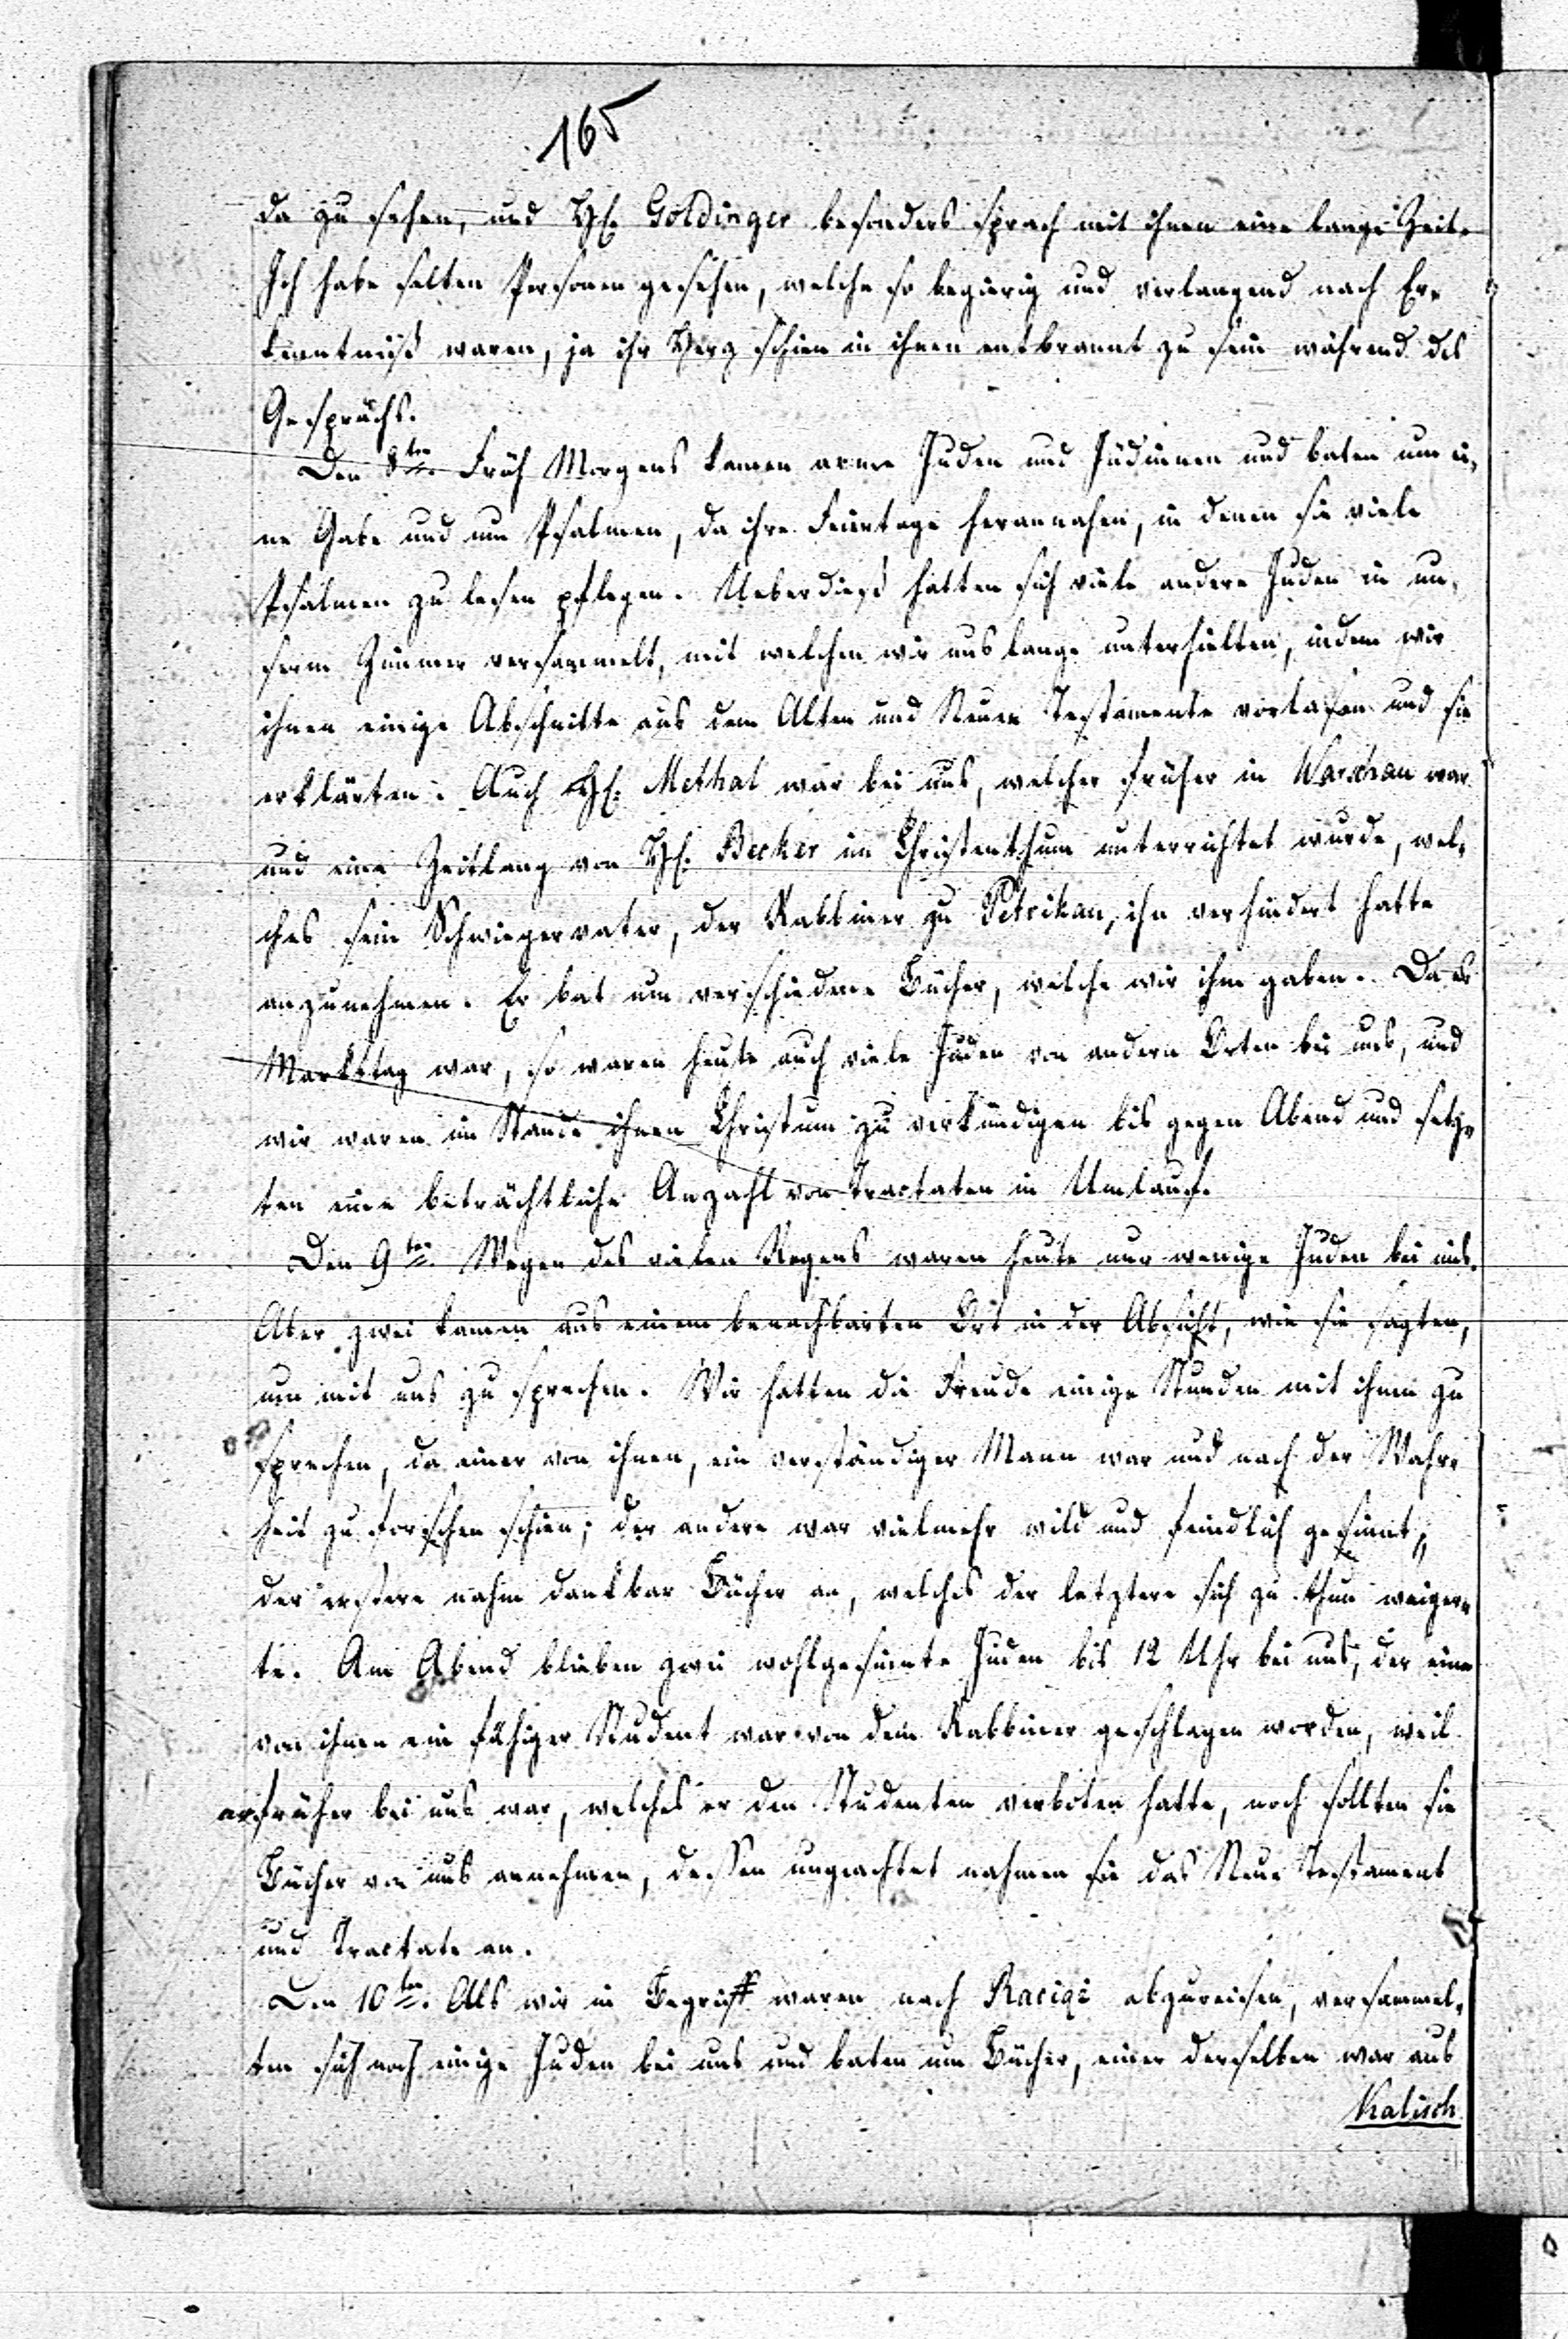 165
da zu sehen, und H. Goldinger besonders sprach mit ihnen eine lange Zeit.
Ich habe selten Personen gesehen, welche so begierig und verlangend nach Er-
kenntniß waren, ja ihr Herz schien in ihnen entbrannt zu sein während des
Gesprächs.
Den 8ten Früh Morgens kamen arme Juden und Jüdinnen und baten um ei-
ne Gabe und um Psalmen, da ihre Feiertage herannahen, in denen sie viele
Psalmen zu lesen pflegen. Ueberdieß hatten sich viele andere Juden in un-
serm Zimmer versammelt, mit welchen wir uns lange unterhielten, indem wir
ihnen einige Abschnitte aus dem Alten und Neuen Testamente vorlasen und sie
erklärten. Auch H. Methal war bei uns, welcher früher in Warschau war
und eine Zeitlang von H. Becker im Christenthum unterrichtet wurde, wel-
ches sein Schwiegervater, der Rabbiner zu Petrikau, ihn verhindert hatte
anzunehmen. Er bat um verschiedene Bücher, welche wir ihm gaben. Da es
Markttag war, so waren heute auch viele Juden von andern Orten bei uns, und
wir waren im Stande ihnen Christum zu verkündigen bis gegen Abend und setz-
ten eine beträchtliche Anzahl von Tractaten in Umlauf.
Den 9ten Wegen des vielen Regens waren heute nur wenige Juden bei uns.
Aber zwei kamen aus einem benachbarten Ort in der Absicht, wie sie sagten,
um mit uns zu sprechen. Wir hatten die Freude einige Stunden mit ihnen zu
sprechen, da einer von ihnen, ein verständiger Mann war und nach der Wahr-
heit zu forschen schien; der andere war vielmehr wild und feindlich gesinnt;
der erstere nahm dankbar Bücher an, welches der letztere sich zu thun weiger-
te. Am Abend blieben zwei wohlgesinnte Juden bis 12 Uhr bei uns, der eine
von ihnen ein fähiger Student war von dem Rabbiner geschlagen worden, weil
er früher bei uns war, welches er den Studenten verboten hatte, noch sollten sie
Bücher von uns annehmen, dessen ungeachtet nahmen sie das Neue Testament
und Tractate an.
Den 10ten. Als wir in Begriff waren nach Raciąż abzureisen, versammel-
ten sich noch einige Juden bei uns und baten um Bücher, einer derselben war aus
Kalisch